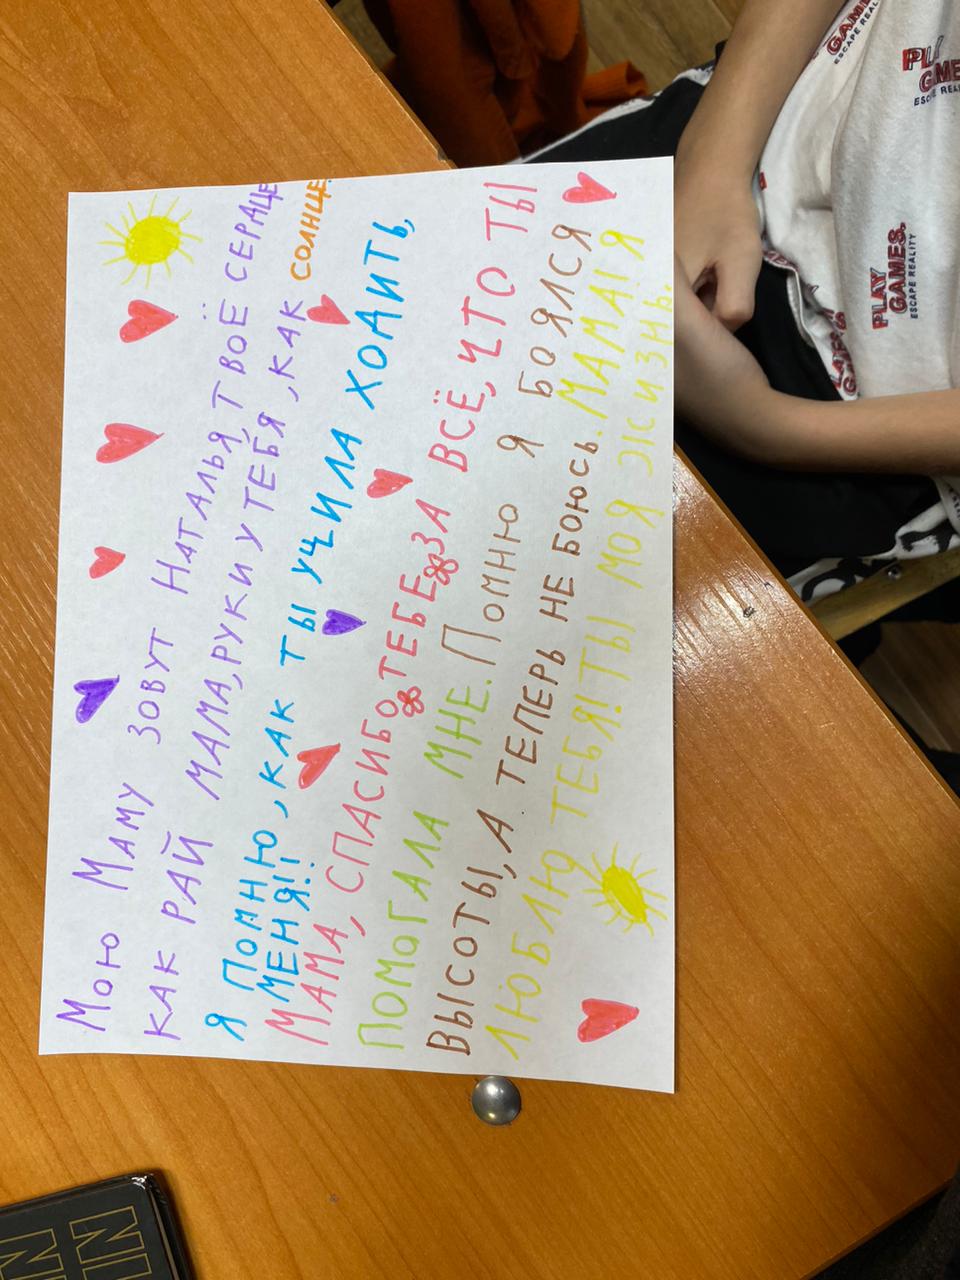 Мою Маму зовут Наталья, твоё сераце
как рай мама, руки у тебя, как солнце
я помню, как ты учила ходить,
меня!!
Мама, спасибо тебе за всё, что ты
помогала мне. Помню я боялся
высоты, а теперь не боюсь. Мама! я
люблю тебя! Ты моя жизнь.
PLAY
GAMES.
ESCAPE REALITY
GAMES
ESCAPE REAL
PL
GAME
ESC
REAL
NI
NI